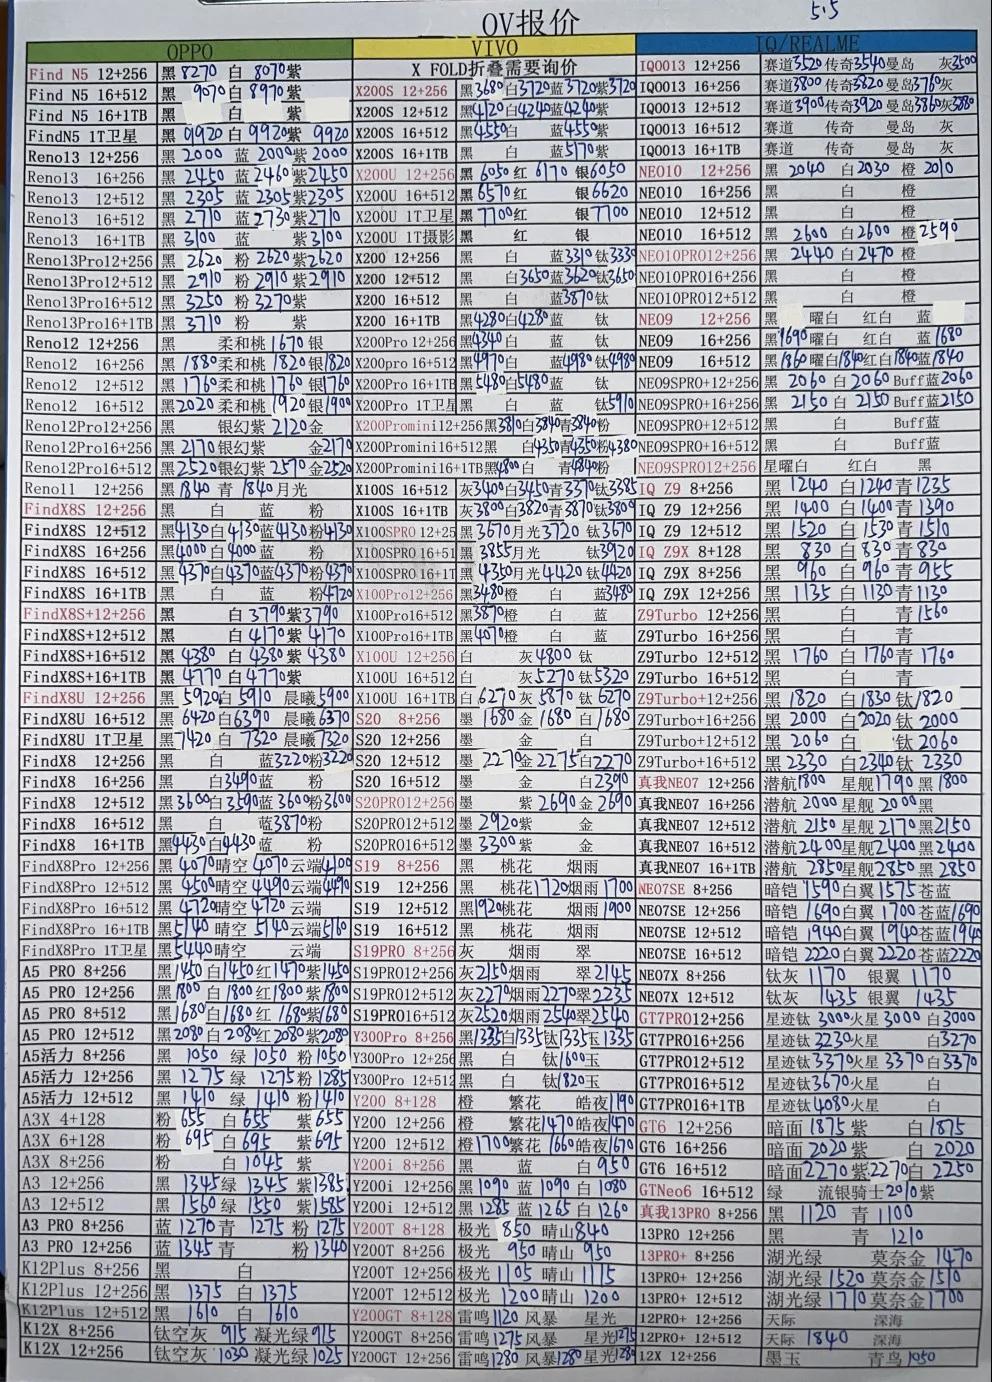 OV报价
5.5
OPPO
Find N5 12+256 黑8270 白 8070紫
Find N5 16+512 黑 9070白 8970紫
Find N5 16+1TB 黑 白 紫
FindN5 1T卫星 黑 9920 白 9920紫 9920
Reno13 12+256 黑 2000 蓝 2000紫 2000
Reno13 16+256 黑 2450 蓝 2460紫2450
Reno13 12+512 黑 2305 蓝 2305紫2305
Reno13 16+512 黑 2710 蓝2730紫2710
Reno13 16+1TB 黑 3100 蓝 紫3100
Reno13Pro12+256 黑 2620 粉 2620紫2620
Reno13Pro12+512 黑 2910 粉 2910紫2910
Reno13Pro16+512 黑 3250 粉 3270紫
Reno13Pro16+1TB 黑 3710 粉 紫
Reno12 12+256 黑 柔和桃 1670 银
Reno12 16+256 黑 1880柔和桃 1820银1820
Reno12 12+512 黑 1760柔和桃 1760 银1760
Reno12 16+512 黑2020 柔和桃 1920银1900
Reno12Pro12+256 黑 银幻紫 2120金
Reno12Pro16+256 黑 2170 银幻紫 金2170
Reno12Pro16+512 黑2520银幻紫 2570 金2520
Reno11 12+256 黑 1840 青 1840月光
FindX8S 12+256 黑 白 蓝 粉
FindX8S 12+512 黑4130白4130蓝4130粉4130
FindX8S 16+256 黑4000白4000 蓝 粉
FindX8S 16+512 黑 4370白4370蓝4370粉4370
FindX8S 16+1TB 黑 白 蓝 粉4720
FindX8S+12+256 黑 白 3790紫3790
FindX8S+12+512 黑 白 4170紫 4170
FindX8S+16+512 黑 4380 白 4380紫 4380
FindX8S+16+1TB 黑 4770 白 4770紫
FindX8U 12+256 黑 5920白 5910 晨曦5900
FindX8U 16+512 黑 6420白6390 晨曦6370
FindX8U 1T卫星 黑7420 白 7320 晨曦7320
FindX8 12+256 黑 白 蓝3220粉3220
FindX8 16+256 黑 白3490蓝 粉
FindX8 12+512 黑3600白3590蓝 3600粉3600
FindX8 16+512 黑 白 蓝3870粉
FindX8 16+1TB 黑4430白4430蓝 粉
FindX8Pro 12+256 黑 4070晴空 4070云端4100
FindX8Pro 12+512 黑 4500晴空 4490云端4490
FindX8Pro 16+512 黑 4720晴空 4720 云端
FindX8Pro 16+1TB 黑5140 晴空 5140云端5160
FindX8Pro 1T卫星 黑5440晴空 云端
A5 PRO 8+256 黑1450 白1450红1470紫1450
A5 PRO 12+256 黑1800 白1800红1800 紫1800
A5 PRO 8+512 黑1680白1680 红 1680紫1680
A5 PRO 12+512 黑2080白 2080红2080紫2080
A5活力 8+256 黑 1050 绿 1050 粉1050
A5活力 12+256 黑 1275 绿 1275粉1285
A5活力 12+512 黑 1410 绿 1410 粉1410
A3X 4+128 粉 655 白 655 紫 655
A3X 6+128 粉 695 白 695 紫695
A3X 8+256 粉 白 1045 紫
A3 12+256 黑 1345绿 1345 紫1385
A3 12+512 黑 1560 绿 1550 紫1585
A3 PRO 8+256 蓝 1270 青 1275 粉1275
A3 PRO 12+256 蓝 1345 青 粉1340
K12Plus 8+256 黑 白
K12Plus 12+256 黑 1375 白 1375
K12Plus 12+512 黑 1610 白 1610
K12X 8+256 钛空灰 915 凝光绿915
K12X 12+256 钛空灰 1030 凝光绿1025
VIVO
X FOLD折叠需要询价
X200S 12+256 黑3680白3720蓝3720紫3720
X200S 12+512 黑4120白4240蓝4240紫
X200S 16+512 黑4550白 蓝4550紫
X200S 16+1TB 黑 白 蓝5170紫
X200U 12+256 黑 6050 红 6170 银6050
X200U 16+512 黑 6570红 银6620
X200U 1T卫星 黑 7700红 银7700
X200U 1T摄影 黑 红 银
X200 12+256 黑 白 蓝3310钛3330
X200 12+512 黑 白3650蓝3620钛3650
X200 16+512 黑 白 蓝3870钛
X200 16+1TB 黑4280白4280蓝 钛
X200Pro 12+256 黑4340白 蓝 钛
X200pro 16+512 黑4970白 蓝4980 钛4980
X200Pro 16+1TB 黑5480白5480蓝 钛
X200Pro 1T卫星 黑 白 蓝 钛5910
X200Promini12+256 黑3810白3840青3840粉
X200Promini16+512 黑 白4350青4350粉4380
X200Promini16+1TB 黑4800白 青4840粉
X100S 16+512 灰3400白3450青3370钛3385
X100S 16+1TB 灰3800白3820青3870钛3809
X100SPRO 12+25 黑 3670月光3720 钛 3670
X100SPRO 16+51 黑 3855月光 钛3920
X100SPRO 16+1T 黑 4350月光4420 钛4420
X100Pro12+256 黑3480橙 白 蓝3480
X100Pro16+512 黑3870橙 白 蓝
X100Pro16+1TB 黑4070橙 白 蓝
X100U 12+256 白 灰4800 钛
X100U 16+512 白 灰5270钛5320
X100U 16+1TB 白6270灰 5870钛 6270
S20 8+256 墨 1680 金 1680 白1680
S20 12+256 墨 金 白
S20 12+512 墨 2270金 2275白2270
S20 16+512 墨 金 白2390
S20PRO12+256 墨 紫 2690金 2690
S20PRO12+512 墨 2920紫 金
S20PRO16+512 墨 3300紫 金
S19 8+256 黑 桃花 烟雨
S19 12+256 黑 桃花1720烟雨 1700
S19 12+512 黑1920桃花 烟雨 1900
S19 16+512 黑 桃花 烟雨
S19PRO 8+256 灰 烟雨 翠
S19PRO12+256 灰2150烟雨 翠2145
S19PRO12+512 灰2270烟雨2270翠2235
S19PRO16+512 灰2520烟雨2540翠2540
Y300Pro 8+256 黑1335白1335钛1335玉1335
Y300Pro 12+256 黑 白 钛1600玉
Y300Pro 12+512 黑 白 钛1820玉
Y200 8+128 橙 繁花 皓夜1190
Y200 12+256 橙 繁花1470皓夜1470
Y200 12+512 橙1700繁花 1660皓夜1670
Y200i 8+256 黑 蓝 白 950
Y200i 12+256 黑 1090 蓝 1090 白 1080
Y200i 12+512 黑 1285 蓝 1265 白 1260
Y200T 8+128 极光 850 晴山840
Y200T 8+256 极光 950 晴山 950
Y200T 12+256 极光 1105 晴山 1115
Y200T 12+512 极光 1200晴山 1200
Y200GT 8+128 雷鸣1120 风暴 星光
Y200GT 8+256 雷鸣1275风暴 星光1275
Y200GT 12+256 雷鸣1280 风暴1280星光1280
IQ/REALME
IQOO13 12+256 赛道3520传奇3540曼岛 灰3500
IQOO13 16+256 赛道3800传奇3820曼岛3760灰
IQOO13 12+512 赛道3900传奇3920 曼岛3860灰3880
IQOO13 16+512 赛道 传奇 曼岛 灰
IQOO13 16+1TB 赛道 传奇 曼岛 灰
NEO10 12+256 黑 2040 白2030 橙 2010
NEO10 16+256 黑 白 橙
NEO10 12+512 黑 白 橙
NEO10 16+512 黑 2600 白2600 橙2590
NEO10PRO12+256 黑 2440 白2470 橙
NEO10PRO16+256 黑 白 橙
NEO10PRO12+512 黑 白 橙
NEO9 12+256 黑 曜白 红白 蓝
NEO9 16+256 黑1690曜白 红白 蓝1680
NEO9 16+512 黑1860曜白1840红白1840蓝1840
NEO9SPRO+12+256 黑 2060 白 2060 Buff蓝2060
NEO9SPRO+16+256 黑 2150 白 2150 Buff蓝2150
NEO9SPRO+12+512 黑 白 Buff蓝
NEO9SPRO+16+512 黑 白 Buff蓝
NEO9SPRO12+256 星曜白 红白 黑
IQ Z9 8+256 黑 1240 白1240青1235
IQ Z9 12+256 黑 1400 白1400青1390
IQ Z9 12+512 黑 1520 白 1530青1510
IQ Z9X 8+128 黑 830 白 830 青 830
IQ Z9X 8+256 黑 960 白 960 青 955
IQ Z9X 12+256 黑 1135 白 1130青1130
Z9Turbo 12+256 黑 白 青 1560
Z9Turbo 16+256 黑 白 青
Z9Turbo 12+512 黑 1760 白 1760青 1760
Z9Turbo 16+512 黑 白 青
Z9Turbo+12+256 黑 1820 白1830 钛1820
Z9Turbo+16+256 黑 2000 白2020 钛 2000
Z9Turbo+12+512 黑 2060 白 钛 2060
Z9Turbo+16+512 黑 2330 白2340钛 2330
真我NEO7 12+256 潜航1800 星舰1790 黑 1800
真我NEO7 16+256 潜航 2000 星舰 2000黑
真我NEO7 12+512 潜航 2150 星舰 2170黑2150
真我NEO7 16+512 潜航2400星舰2400 黑2400
真我NEO7 16+1TB 潜航 2850星舰2850 黑 2850
NEO7SE 8+256 暗铠 1590白翼 1575 苍蓝
NEO7SE 12+256 暗铠 1690白翼 1700 苍蓝1690
NEO7SE 12+512 暗铠 1940白翼 1940苍蓝1940
NEO7SE 16+512 暗铠 2220白翼 2220 苍蓝2220
NEO7X 8+256 钛灰 1170 银翼 1170
NEO7X 12+512 钛灰 1435 银翼 1435
GT7PRO12+256 星迹钛 3000火星 3000 白3000
GT7PRO16+256 星迹钛 3230火星 白3270
GT7PRO12+512 星迹钛 3370火星 3370白3370
GT7PRO16+512 星迹钛3670火星 白
GT7PRO16+1TB 星迹钛4080火星 白
GT6 12+256 暗面 1875 紫 白1875
GT6 16+256 暗面 2020 紫 白 2020
GT6 16+512 暗面2270紫2270白 2250
GTNeo6 16+512 绿 流银骑士2010紫
真我13PRO 8+256 黑 1120 青 1100
13PRO 12+256 黑 青 1210
13PRO+ 8+256 湖光绿 莫奈金 1470
13PRO+ 12+256 湖光绿 1520 莫奈金1510
13PRO+ 12+512 湖光绿 1710莫奈金1700
12PRO+ 12+256 天际 深海
12PRO+ 12+512 天际 1840 深海
12X 12+256 墨玉 青鸟1050